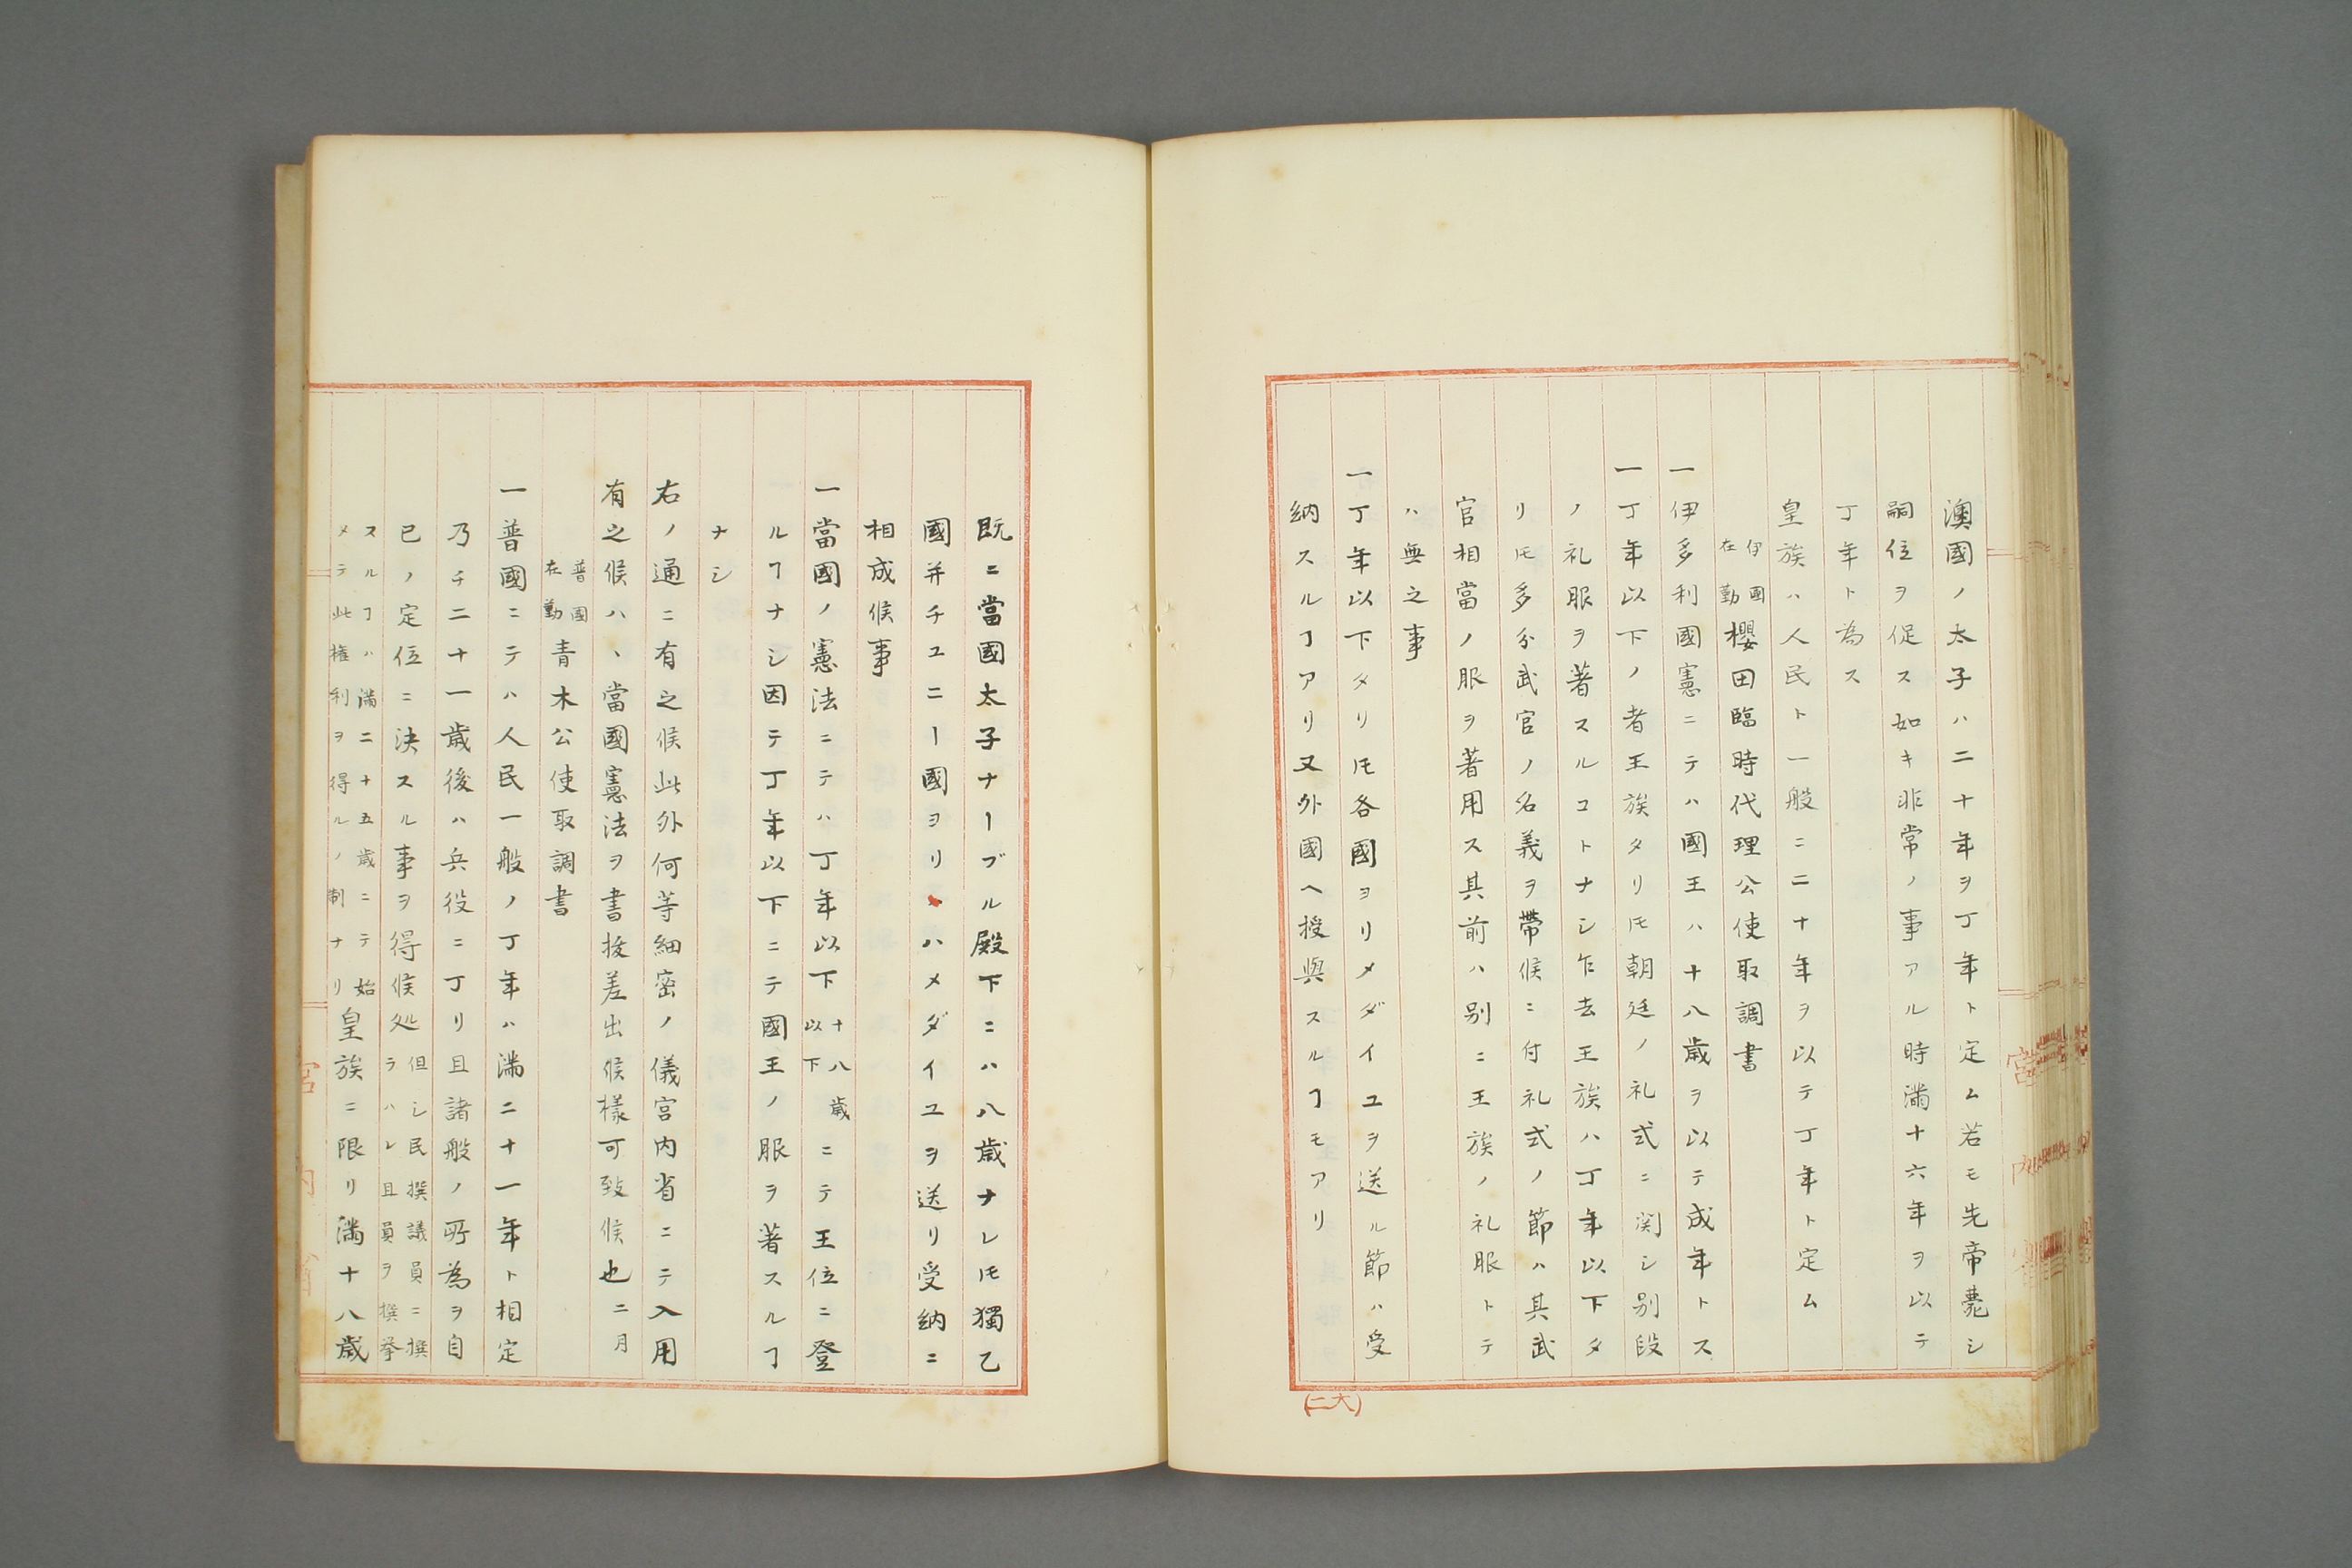 澳國ノ太子ハ二十年ヲ丁年ト定ム若モ先帝薨シ
嗣位ヲ促ス如キ非常ノ事アル時滿十六年ヲ以テ
丁年ト為ス
皇族ハ人民ト一般ニ二十年ヲ以テ丁年ト定ム
伊國
在勤
櫻田臨時代理公使取調書
一伊多利國憲ニテハ國王ハ十八歳ヲ以テ成年トス
一丁年以下ノ者王族タリ𪜈朝廷ノ礼式ニ関シ別段
ノ礼服ヲ著スルコトナシ乍去王族ハ丁年以下タ
リ𪜈多分武官ノ名義ヲ帶候ニ付礼式ノ節ハ其武
官相當ノ服ヲ著用ス其前ハ別ニ王族ノ礼服トテ
ハ無之事
一丁年以下タリ𪜈各國ヨリメダイユヲ送ル節ハ受
納スルヿアリ又外國ヘ授與スルヿモアリ
(二大)
既ニ當國太子ナーブル殿下ニハ八歳ナレ𪜈獨乙
國并チユニー國ヨリハメダイユヲ送リ受納ニ
相成候事
一當國ノ憲法ニテハ丁年以下
十八歳
以下
ニテ王位ニ登
ルヿナシ因テ丁年以下ニテ國王ノ服ヲ著スルヿ
ナシ
右ノ通ニ有之候此外何等細密ノ儀宮内省ニテ入用
有之候ハヽ當國憲法ヲ書抜差出候様可致候也二月
普國
在勤
青木公使取調書
一普國ニテハ人民一般ノ丁年ハ満二十一年ト相定
乃チ二十一歳後ハ兵役ニ丁リ且諸般ノ所為ヲ自
已ノ定位ニ決スル事ヲ得候処
但シ民撰議員ニ撰
ラハレ且員ヲ撰挙
スルヿハ満二十五歳ニテ始
メテ此権利ヲ得ルノ制ナリ
皇族ニ限リ満十八歳
宮内省